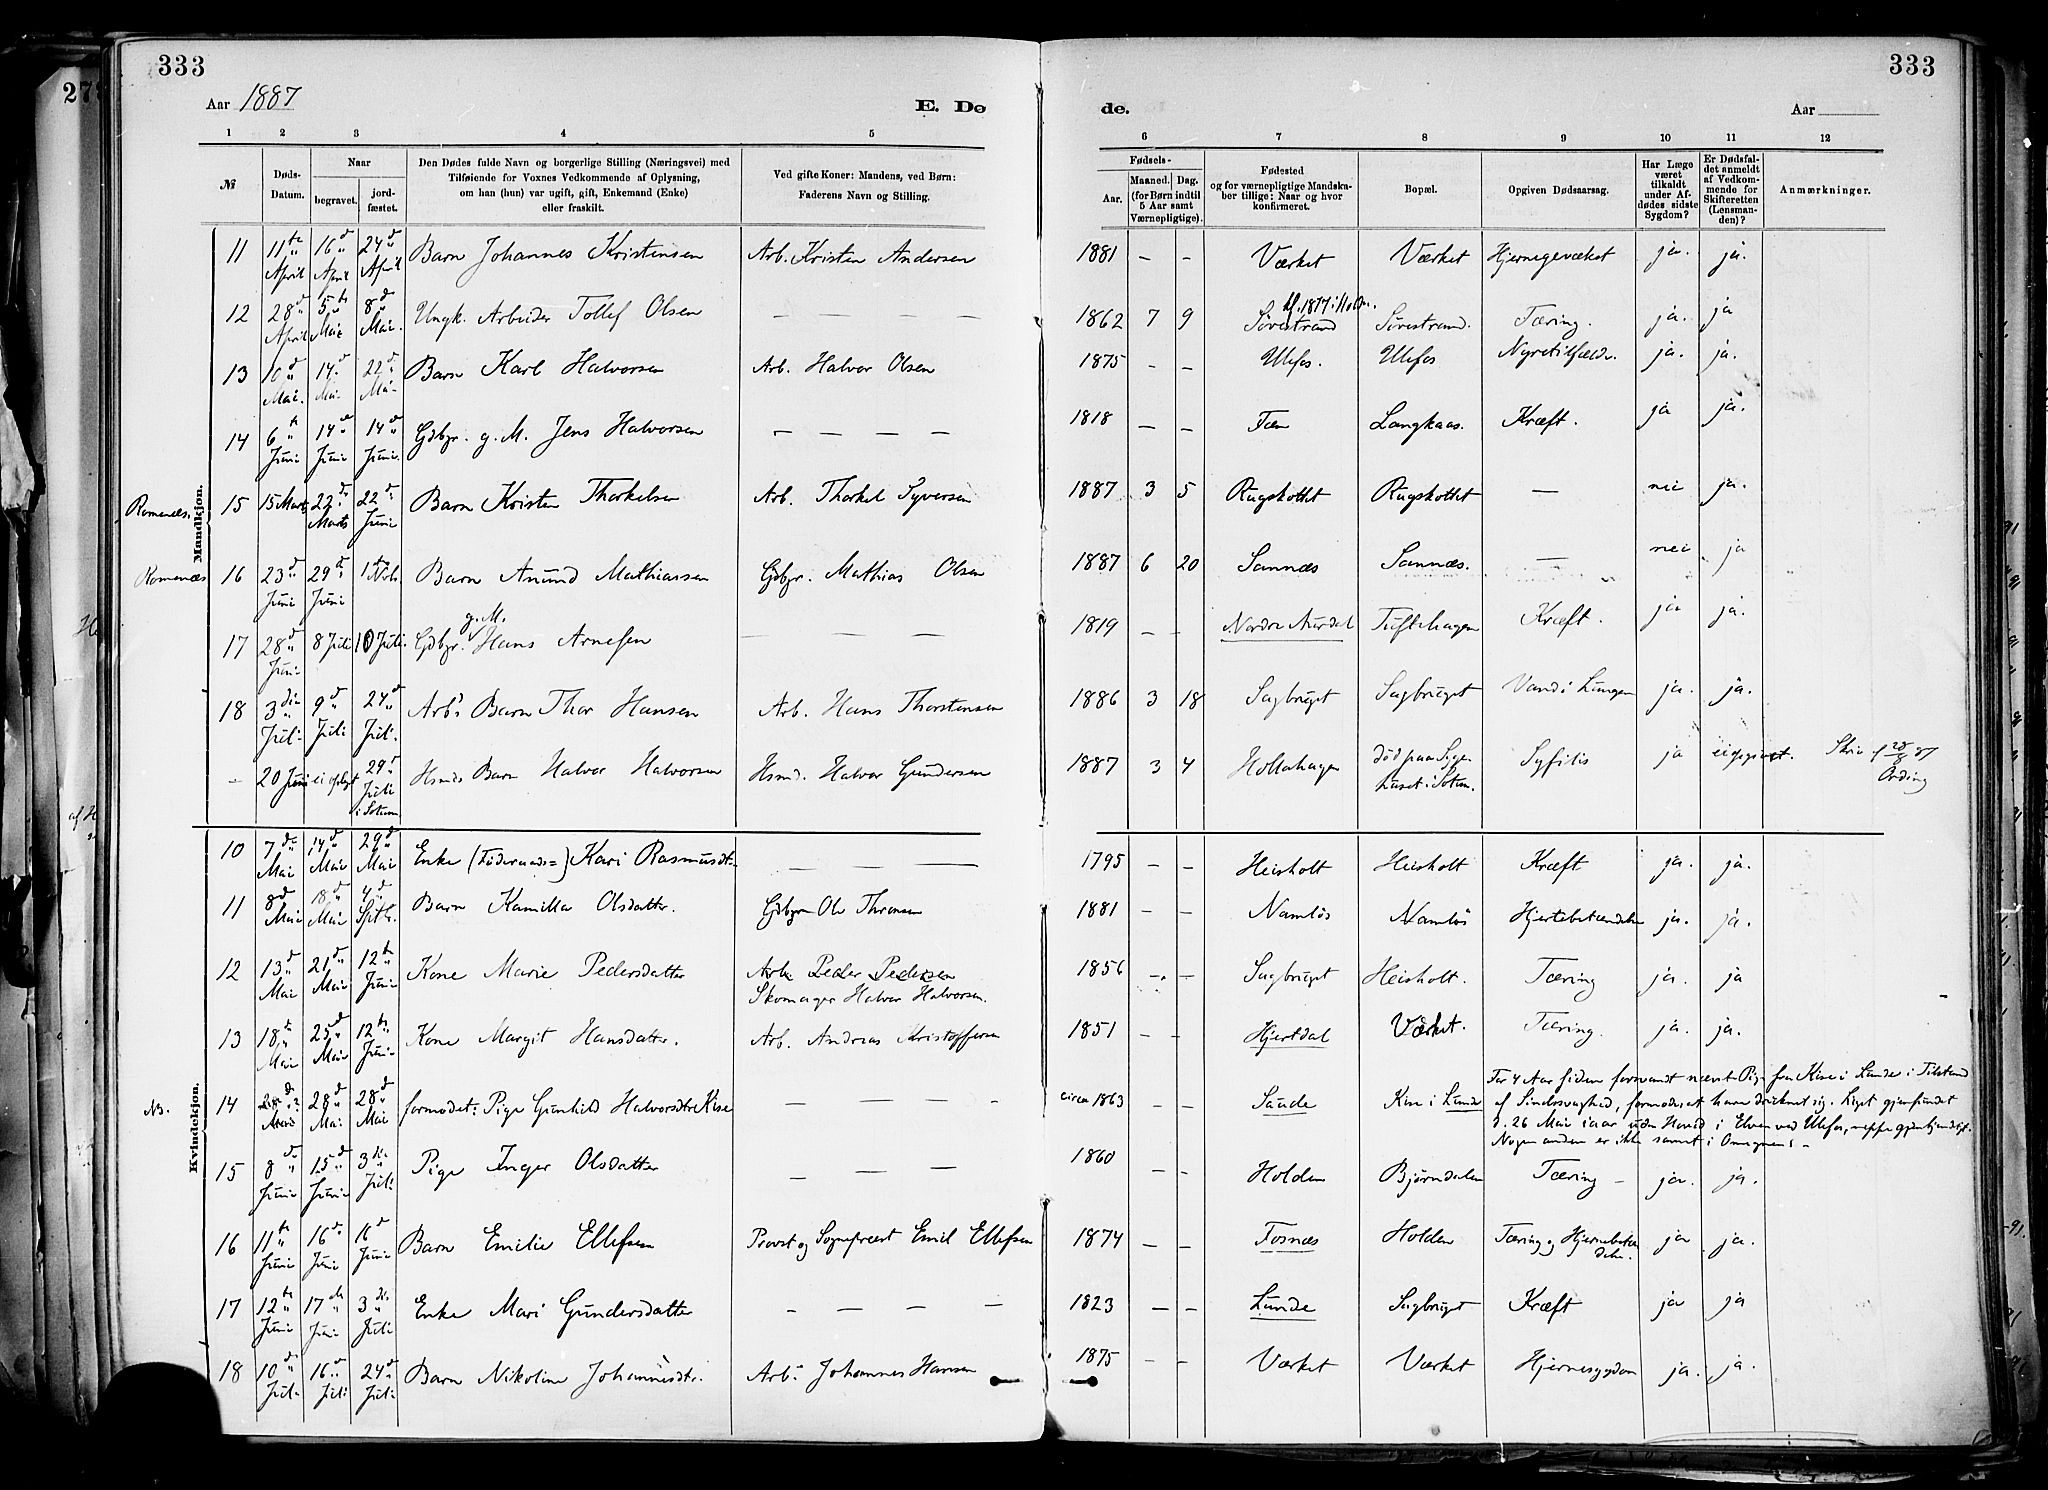 333
333
Aar 1887
E. Dø
de.
Aar
1 2 3 4 5 6 7 8 9 10 11 12
№
Døds-Datum.
Naar
begravet.
jord-fæstet.
Den Dødes fulde Navn og borgerlige Stilling (Næringsvei) med
Tilføiende for Voxnes Vedkommende af Oplysning,
om han (hun) var ugift, gift, Enkemand (Enke)
eller fraskilt.
Ved gifte Koner: Mandens, ved Børn:
Faderens Navn og Stilling.
Fødsels-
Aar.
Maaned. Dag.
(for Børn indtil
5 Aar samt
Værnepligtige).
Fødested
og for værnepligtige Mandska-
ber tillige: Naar og hvor
konfirmeret.
Bopæl.
Opgiven Dødsaarsag.
Har Læge
været
tilkaldt
under Af-
dødes sidste
Sygdom?
Er Dødsfal-
det anmeldt
af Vedkom-
mende for
Skifteretten
(Lensman-
den)?
Anmærkninger.
Mandkjøn.
11 11te April 16d April 24d April Barn Johannes Kristensen Arb. Kristen Andersen 1881 – – Værket Værket ja. ja.
12 28d April 5te Mai 8d Mai. Ungk. Arbeider Tollef Olsen – – – – 1862 7 9 kf. 1877 i Holden. Sørestrand Sørestrand. Tæring. ja. ja
13 10d Mai. 14d Mai 22d Mai Barn Karl Halvorsen Arb. Halvor Olsen 1875 – – Ulefos. Ulefos Nyretilfælde. ja. ja.
14 6te Juni 14d Juni 14d Juni. Gdbgr. g. M. Jens Halvorsen – – – – 1818 – – Fæn Langkaas. Kræft. ja ja.
Romenæs. 15 15 Marts 22d Marts 22d Juni Barn Kristen Thorkelsen Arb. Thorkel Syversen 1887 3 5 Rugskottet Rugskottet – nei ja.
Romenæs 16 23d Juni 29d Juni Barn Anund Mathiassen Gdbgr. Mathias Olsen 1887 6 20 Sannæs Sannæs. – nei ja
17 28d Juni 8 Juli 10 Juli. Gdbgr. g. M. Hans Arnesen – – – – 1819 – – Nordre Aurdal Tuftehagen Kræft. ja ja.
18 3die Juli 9d Juli 24d Juli. Arb's Barn Thor Hansen Arb. Hans Thorstensen 1886 3 18 Sagbruget Sagbruget Vand i Lungen ja. ja.
– 20 Juni ei opgivet 29d Juli i Solum Hsmds Barn Halvor Halvorsen Hsmd. Halvor Gundersen 1887 3 4 Hollahagen død paa Syge-
huset i Solum. Syfilis ja ei opgivet.
Kvindekjøn.
10 7de Mai 14d Mai 29d Mai Enke (Føderaads=) Kari Rasmusdt. – – – 1795 – – Heisholt Heisholt Kræft ja. ja.
11 8d Mai 18d Mai 4d Septb. Barn Kamilla Olsdatter. Gdbgr. Ole Thronsen 1881 – – Namløs Namløs Hjertebetændelse ja. ja.
12 13d Mai 21d Mai 12te Juni Kone Marie Pedersdatter Arb. Peder Pedersen
Skomager Halvor Halvorsen. 1856 – – Sagbruget Heisholt. Tæring ja. ja
13 18te Mai 25d Mai 12te Juni Kone Margit Hansdatter. Arb. Andreas Kristoffersen 1851 – – Hjertdal Værket. Tæring. ja. ja.
NB. 14 28d Mai 28d Mai formodet: Pige Gunhild Halvorsdtr Kise – – – – circa 1863 Saude Kise i Lunde For 4 Aar siden forsvandt nævnte Pige fra Kise i Lunde i Tilstand
af Sindssvaghed, formodes at have druknet sig. Liget gjenfundet
d. 26 Mai iaar uden Hoved i Elven ved Ulefos, neppe gjenkjendeligt.
Nogen anden er ikke savnet i Omegnen. –
15 8de Juni 15d Juni 3die Juli Pige Inger Olsdatter – – – 1860 – – Holden Bjørndalen Tæring – ja. ja.
16 11te Juni 16de Juni 16d Juni Barn Emilie Ellefsen Provst og Sognepræst Emil Ellefsen 1874 – – Fosnæs Holden Tæring og Hjernebetæn-
delse. ja ja.
17 12te Juni 17de Juni 3die Juli Enke Mari Gundersdatter – – – – 1823 – – Lunde Sagbruget Kræft ja ja
18 10de Juli 16d Juli 24d Juli Barn Nikoline Johannesdtr. Arb. Johannes Hansen 1875 – – Værket Værket Hjernesygdom ja. ja.